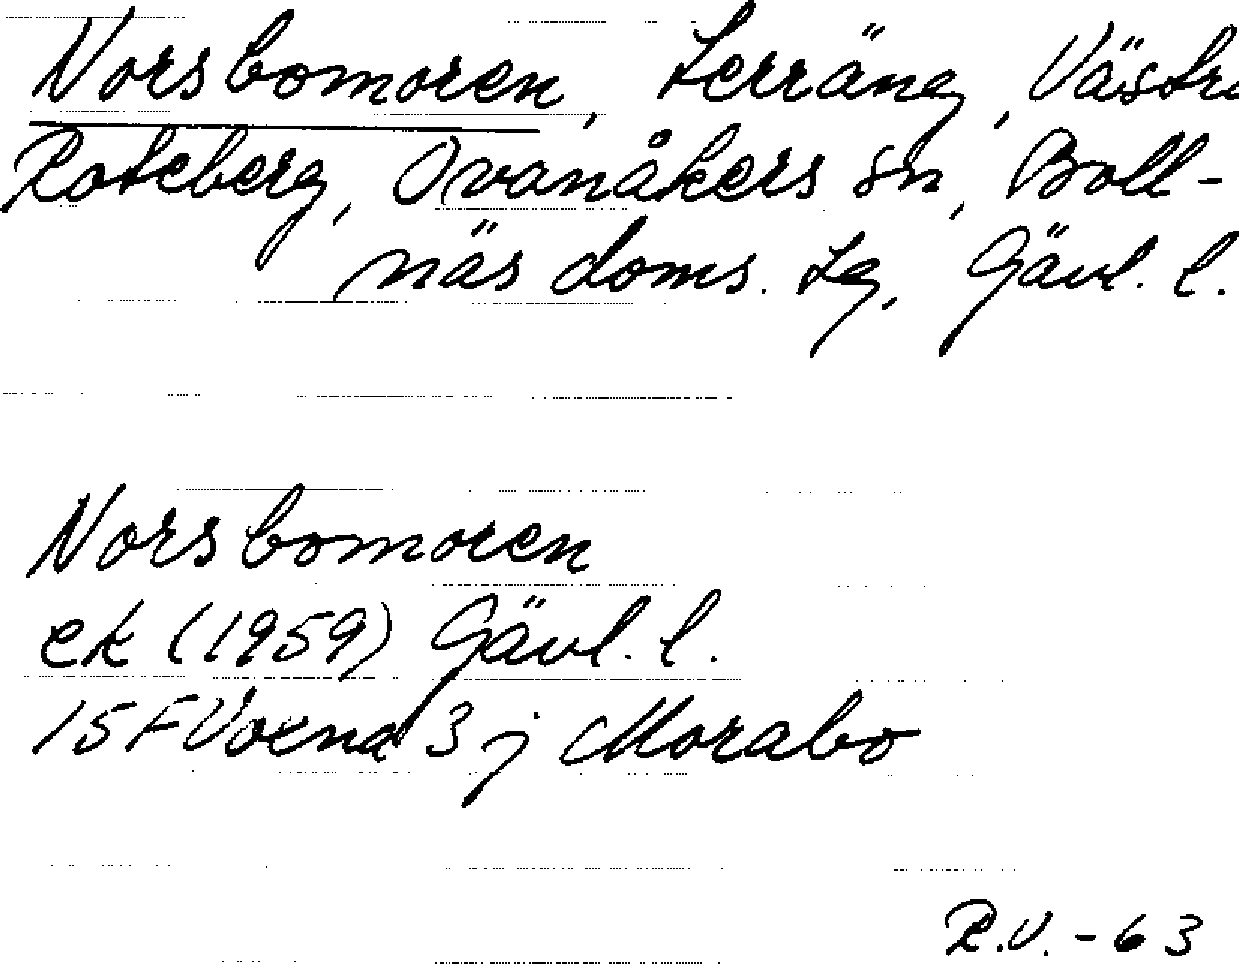 Norsbomoren, Terräng, Västra
Roteberg, Ovanåkers sn, Boll-
näs doms. tg, Gävl. l.
Norsbomoren
ek (1959) Gävl. l.
15F Voxna 3 j Morabo
R.V. - 63